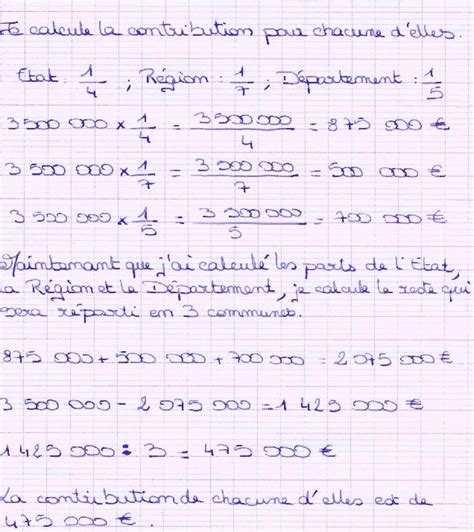 Je calcule la contribution pour chacune d'elles.
Etat : 1/4 ; Région : 1/7 ; Département : 1/5
3 500 000 × 1/4 = 3 500 000/4 = 875 000 €
3 500 000 × 1/7 = 3 500 000/7 = 500 000 €
3 500 000 × 1/5 = 3 500 000/5 = 700 000 €
Maintenant que j'ai calculé les parts de l'Etat,
la Région et le Département, je calcule le reste qui
sera réparti en 3 communes.
875 000 + 500 000 + 700 000 = 2 075 000 €
3 500 000 - 2 075 000 = 1 425 000 €
1 425 000 : 3 = 475 000 €
La contribution de chacune d'elles est de
475 000 €.